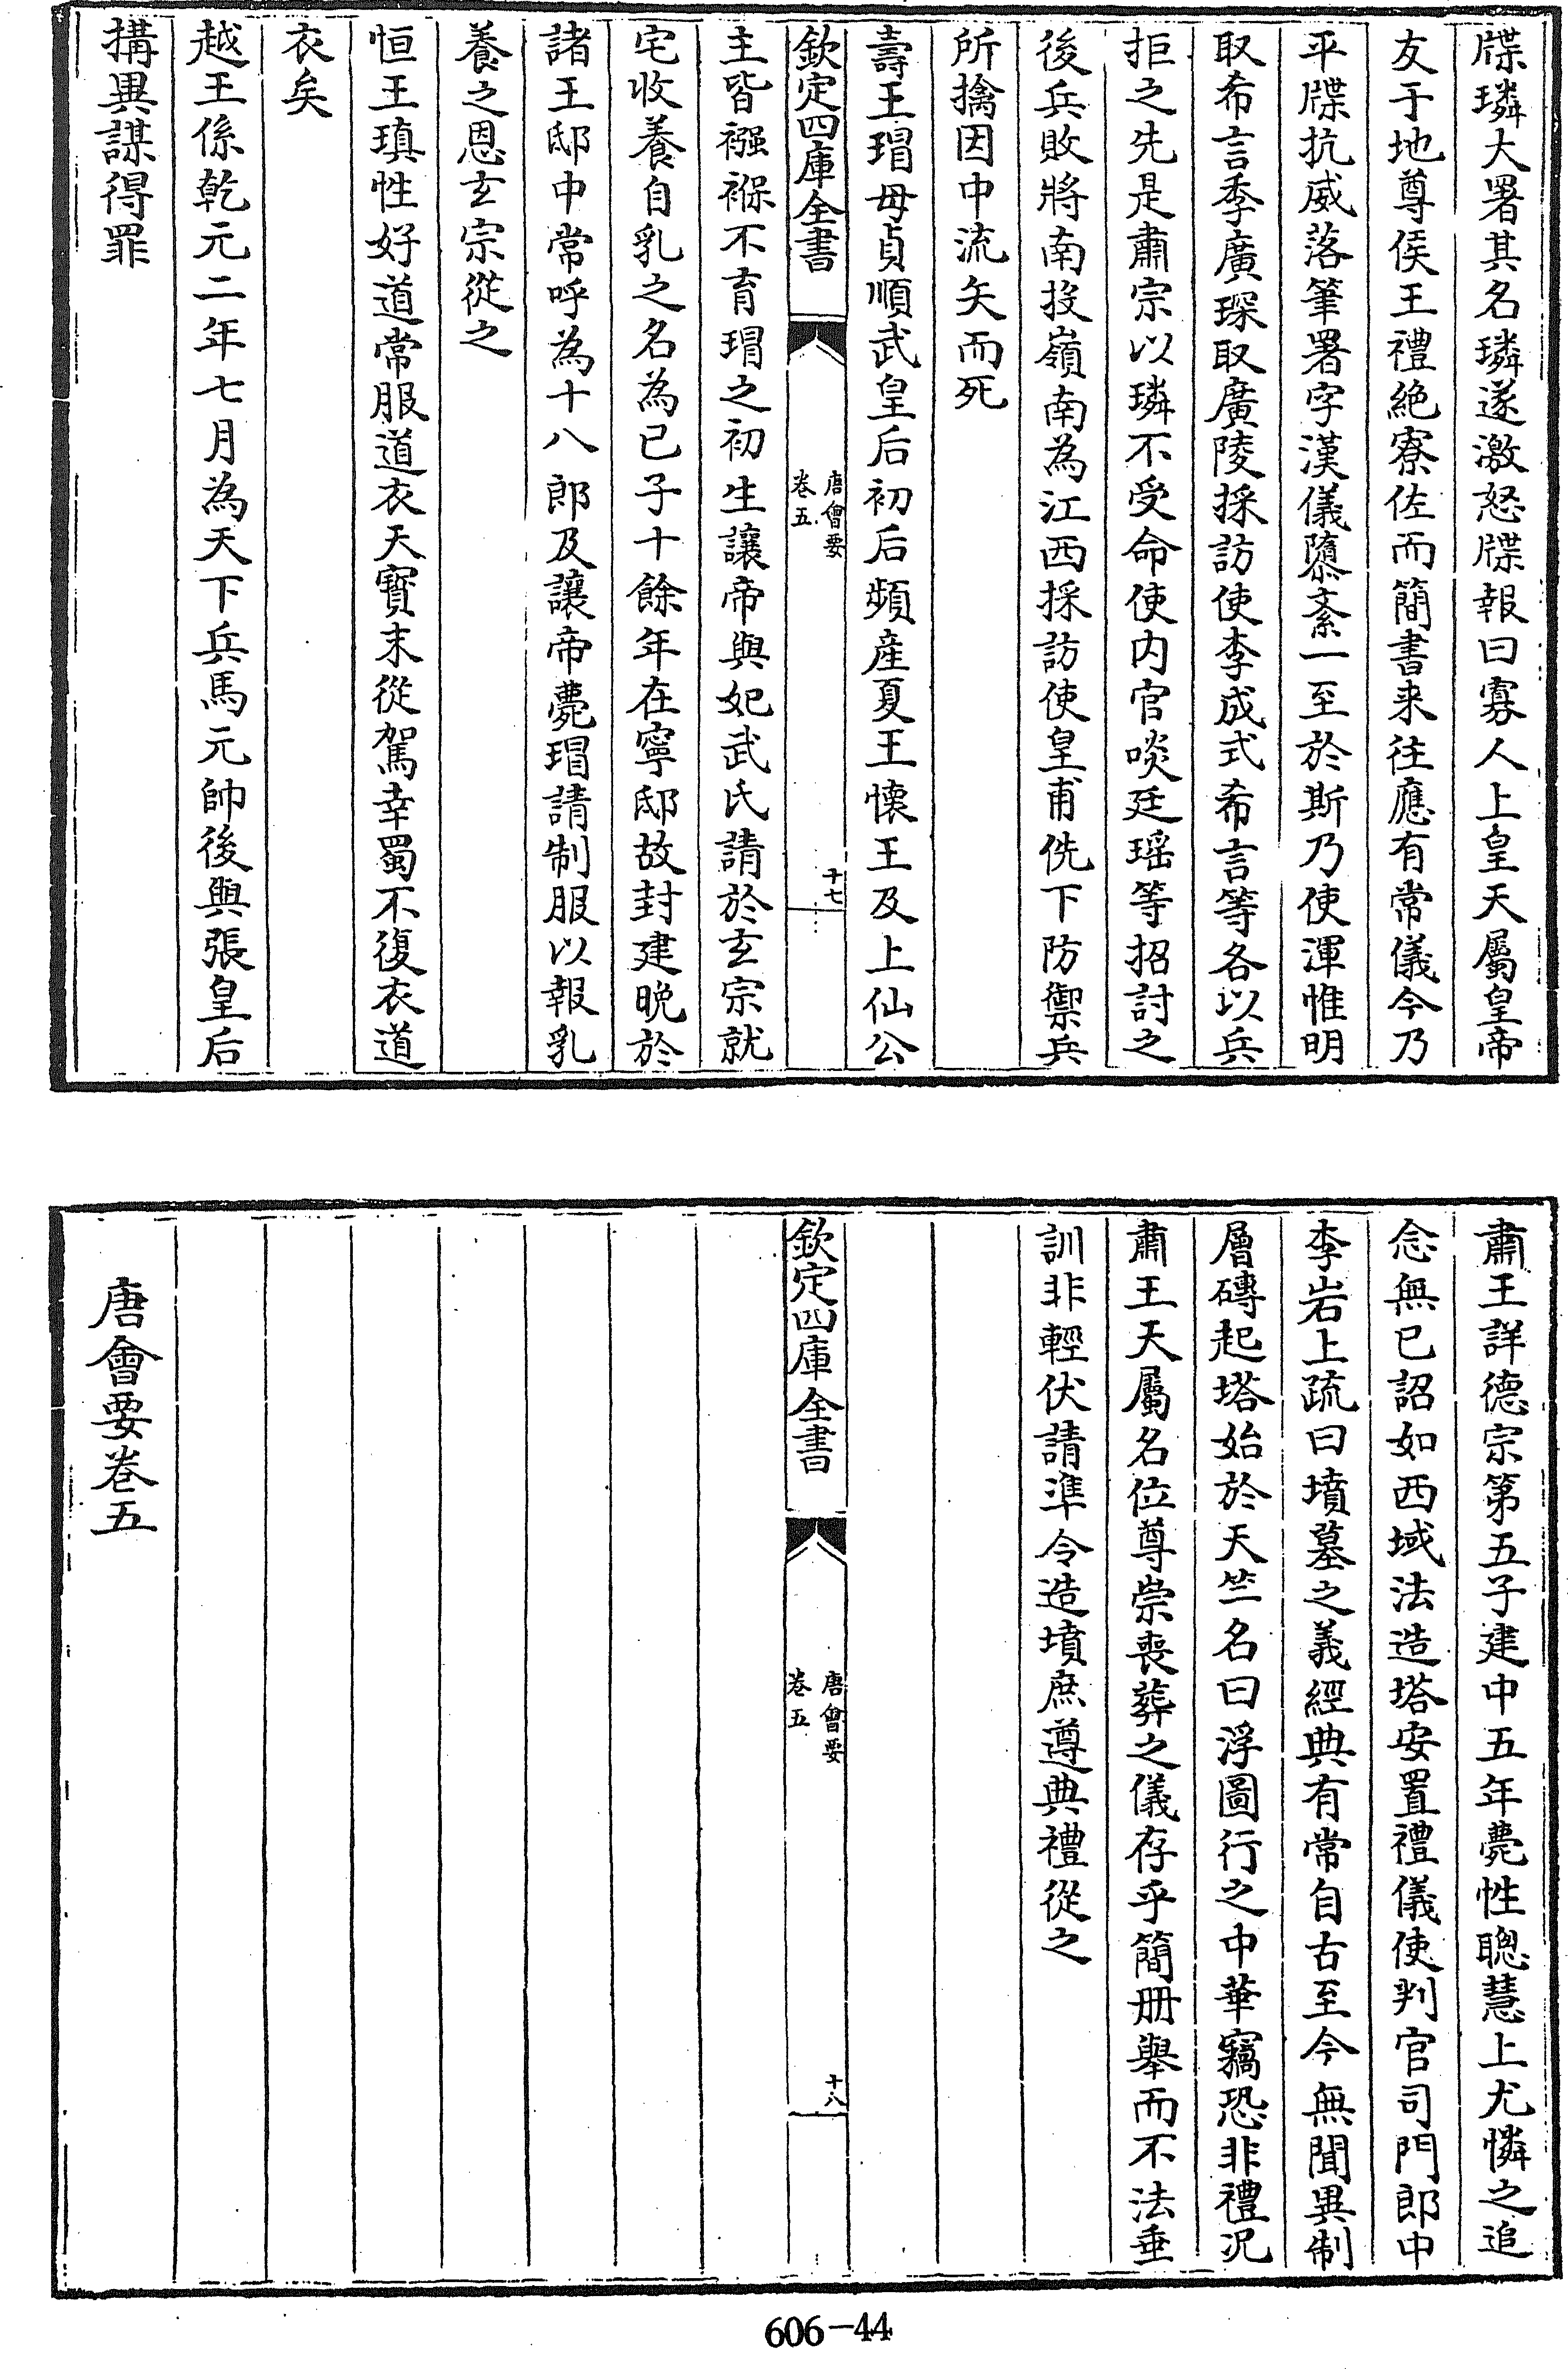 牒璘大署其名璘遂激怒牒報曰寡人上皇天屬皇帝
友于地尊侯王禮絶寮佐而簡書来往應有常儀今乃
平牒抗威落筆署字漢儀隳紊一至於斯乃使渾惟明
取希言季廣琛取廣陵採訪使李成式希言等各以兵
拒之先是肅宗以璘不受命使内官啖廷瑶等招討之
後兵敗將南投嶺南為江西採訪使皇甫侁下防禦兵
所擒因中流矢而死
壽王瑁母貞順武皇后初后頻産夏王懐王及上仙公
欽定四庫全書
唐會要
卷五
十七
主皆襁褓不育瑁之初生讓帝與妃武氏請於玄宗就
宅收養自乳之名為已子十餘年在寧邸故封建晚於
諸王邸中常呼為十八郎及讓帝薨瑁請制服以報乳
養之恩玄宗從之
恒王瑱性好道常服道衣天寳末從駕幸蜀不復衣道
衣矣
越王係乾元二年七月為天下兵馬元帥後與張皇后
搆異謀得罪
肅王詳德宗第五子建中五年薨性聰慧上尤憐之追
念無已詔如西域法造塔安置禮儀使判官司門郎中
李岩上疏曰墳墓之義經典有常自古至今無聞異制
層磚起塔始於天竺名曰浮圖行之中華竊恐非禮况
肅王天屬名位尊崇喪葬之儀存乎簡册舉而不法垂
訓非輕伏請準令造墳庶遵典禮從之
欽定四庫全書
唐會要
卷五
十八
唐會要卷五
606-44